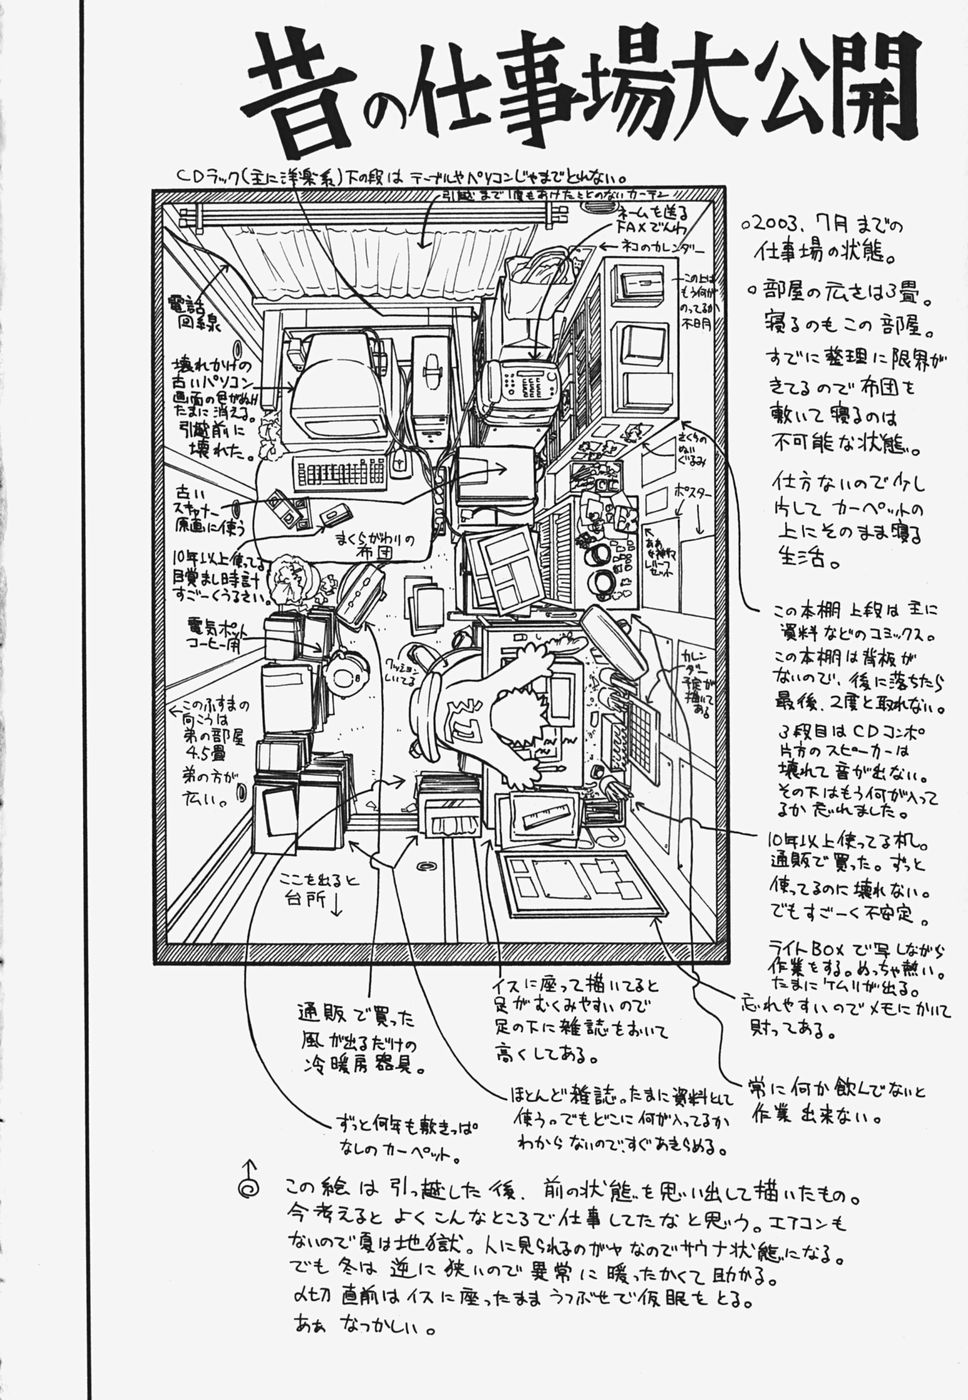 昔の仕事場大公開
CDラック(主に洋楽系)下の段は テーブルやパソコンじゃまでとれない。
引越まで1度もあけたことのないカーテン
ネームを送る
FAXでんわ
ネコのカレンダー
この上は
もう何が
のってるか
不明
電話
回線
壊れかけの
古いパソコン
画面の色がぬけ
たまに消える。
引越前に
壊れた。
さくらの
ぬいぐるみ
ポスター
古い
スキャナー
原画に使う
まくらがわりの
布団
10年以上使ってる
目覚まし時計
すごーくうるさい。
電気ポット
コーヒー用
クッション
しいてる
カレンダー
予定が
描いてある
このふすまの
向こうは
弟の部屋
4.5畳
弟の方が
広い。
ここを出ると
台所
○2003.7月までの
仕事場の状態。
○部屋の広さは3畳。
寝るのもこの部屋。
すでに整理に限界が
きてるので布団を
敷いて寝るのは
不可能な状態。
仕方ないので少し
片してカーペットの
上にそのまま寝る
生活。
この本棚上段は主に
資料などのコミックス。
この本棚は背板が
ないので、後に落ちたら
最後、2度と取れない。
3段目はCDコンポ
片方のスピーカーは
壊れて音が出ない。
その下はもう何が入って
るか忘れました。
10年以上使ってる机。
通販で買った。ずっと
使ってるのに壊れない。
でもすごーく不安定。
ライトBOXで写しながら
作業をする。めっちゃ熱い。
たまにケムリが出る。
忘れやすいのでメモにかいて
貼ってある。
常に何か飲んでないと
作業出来ない。
イスに座って描いてると
足がむくみやすいので
足の下に雑誌をおいて
高くしてある。
通販で買った
風が出るだけの
冷暖房器具。
ほとんど雑誌。たまに資料として
使う。でもどこに何が入ってるか
わからないので、すぐあきらめる。
ずっと何年も敷きっぱ
なしのカーペット。
この絵は引っ越した後、前の状態を思い出して描いたもの。
今考えるとよくこんなところで仕事してたなと思う。エアコンも
ないので夏は地獄。人に見られるのがヤなのでサウナ状態になる。
でも冬は逆に狭いので異常に暖ったかくて助かる。
〆切直前はイスに座ったままうつぶせで仮眠をとる。
ああなつかしい。